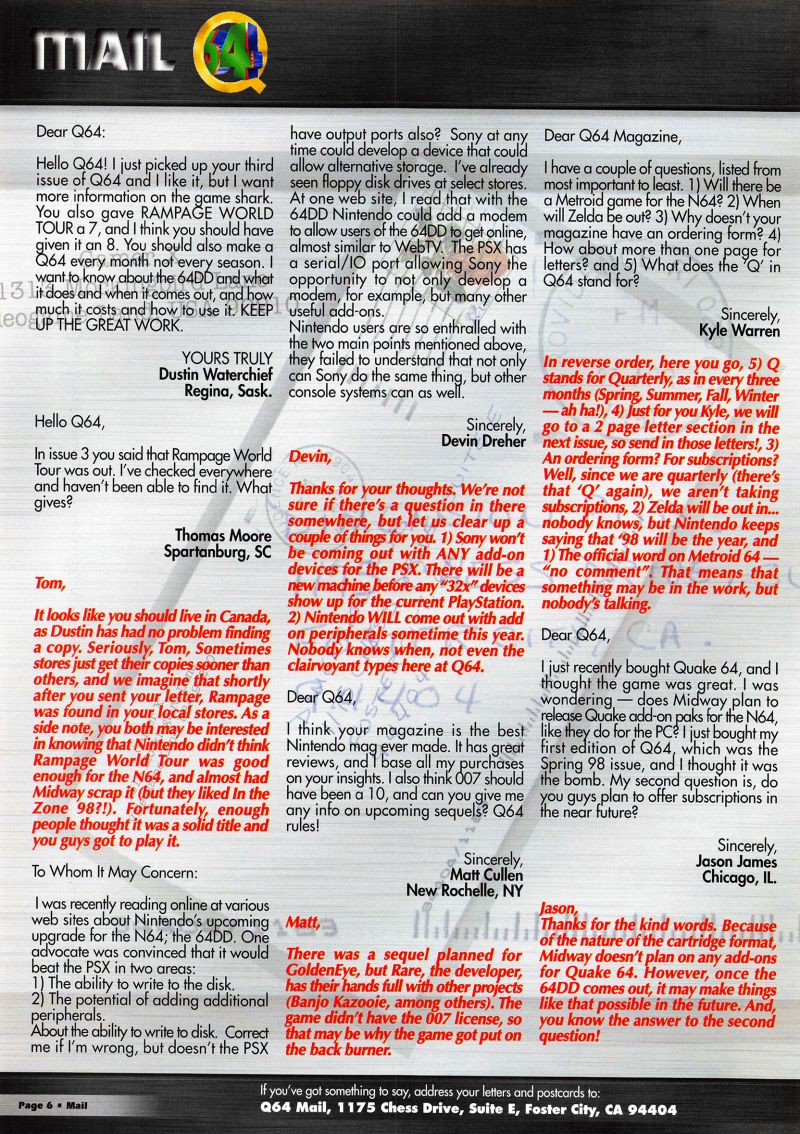 MAIL
Q64
Dear Q64:
Hello Q64! I just picked up your third
issue of Q64 and I like it, but I want
more information on the game shark.
You also gave RAMPAGE WORLD
TOUR a 7, and I think you should have
given it an 8. You should also make a
Q64 every month not every season. I
want to know about the 64DD and what
it does and when it comes out, and how
much it costs and how to use it. KEEP
UP THE GREAT WORK.
YOURS TRULY
Dustin Waterchief
Regina, Sask.
Hello Q64,
In issue 3 you said that Rampage World
Tour was out. I've checked everywhere
and haven't been able to find it. What
gives?
Thomas Moore
Spartanburg, SC
Tom,
It looks like you should live in Canada,
as Dustin has had no problem finding
a copy. Seriously, Tom, Sometimes
stores just get their copies sooner than
others, and we imagine that shortly
after you sent your letter, Rampage
was found in your local stores. As a
side note, you both may be interested
in knowing that Nintendo didn't think
Rampage World Tour was good
enough for the N64, and almost had
Midway scrap it (but they liked In the
Zone 98?!). Fortunately, enough
people thought it was a solid title and
you guys got to play it.
To Whom It May Concern:
I was recently reading online at various
web sites about Nintendo's upcoming
upgrade for the N64; the 64DD. One
advocate was convinced that it would
beat the PSX in two areas:
1) The ability to write to the disk.
2) The potential of adding additional
peripherals.
About the ability to write to disk. Correct
me if I'm wrong, but doesn't the PSX
have output ports also? Sony at any
time could develop a device that could
allow alternative storage. I've already
seen floppy disk drives at select stores.
At one web site, I read that with the
64DD Nintendo could add a modem
to allow users of the 64DD to get online,
almost similar to WebTV. The PSX has
a serial/IO port allowing Sony the
opportunity to not only develop a
modem, for example, but many other
useful add-ons.
Nintendo users are so enthralled with
the two main points mentioned above,
they failed to understand that not only
can Sony do the same thing, but other
console systems can as well.
Sincerely,
Devin Dreher
Devin,
Thanks for your thoughts. We're not
sure if there's a question in there
somewhere, but let us clear up a
couple of things for you. 1) Sony won't
be coming out with ANY add-on
devices for the PSX. There will be a
new machine before any "32x" devices
show up for the current PlayStation.
2) Nintendo WILL come out with add
on peripherals sometime this year.
Nobody knows when, not even the
clairvoyant types here at Q64.
Dear Q64,
I think your magazine is the best
Nintendo mag ever made. It has great
reviews, and I base all my purchases
on your insights. I also think 007 should
have been a 10, and can you give me
any info on upcoming sequels? Q64
rules!
Sincerely,
Matt Cullen
New Rochelle, NY
Matt,
There was a sequel planned for
GoldenEye, but Rare, the developer,
has their hands full with other projects
(Banjo Kazooie, among others). The
game didn't have the 007 license, so
that may be why the game got put on
the back burner.
Dear Q64 Magazine,
I have a couple of questions, listed from
most important to least. 1) Will there be
a Metroid game for the N64? 2) When
will Zelda be out? 3) Why doesn't your
magazine have an ordering form? 4)
How about more than one page for
letters? and 5) What does the 'Q' in
Q64 stand for?
Sincerely,
Kyle Warren
In reverse order, here you go, 5) Q
stands for Quarterly, as in every three
months (Spring, Summer, Fall, Winter
— ah ha!), 4) Just for you Kyle, we will
go to a 2 page letter section in the
next issue, so send in those letters!, 3)
An ordering form? For subscriptions?
Well, since we are quarterly (there's
that 'Q' again), we aren't taking
subscriptions, 2) Zelda will be out...
nobody knows, but Nintendo keeps
saying that '98 will be the year, and
1) The official word on Metroid 64 —
"no comment"! That means that
something may be in the work, but
nobody's talking.
Dear Q64,
I just recently bought Quake 64, and I
thought the game was great. I was
wondering — does Midway plan to
release Quake add-on paks for the N64,
like they do for the PC? I just bought my
first edition of Q64, which was the
Spring 98 issue, and I thought it was
the bomb. My second question is, do
you guys plan to offer subscriptions in
the near future?
Sincerely,
Jason James
Chicago, IL.
Jason,
Thanks for the kind words. Because
of the nature of the cartridge format,
Midway doesn't plan on any add-ons
for Quake 64. However, once the
64DD comes out, it may make things
like that possible in the future. And,
you know the answer to the second
question!
Page 6 ▪ Mail
If you've got something to say, address your letters and postcards to:
Q64 Mail, 1175 Chess Drive, Suite E, Foster City, CA 94404